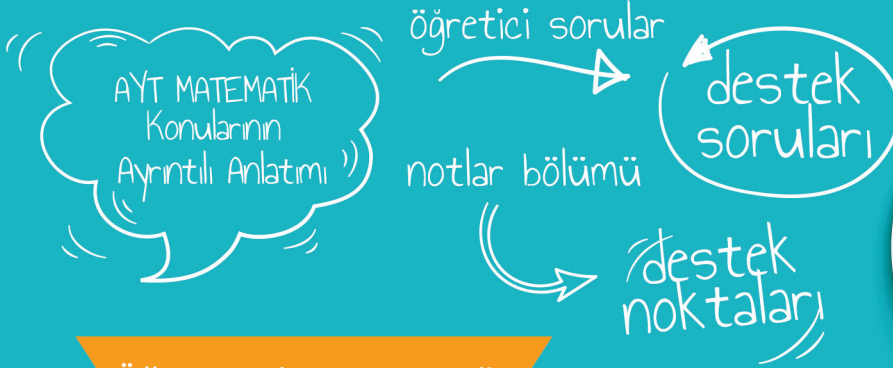 AYT MATEMATİK
Konularının
Ayrıntılı Anlatımı
öğretici sorular
destek
soruları
notlar bölümü
destek
noktaları